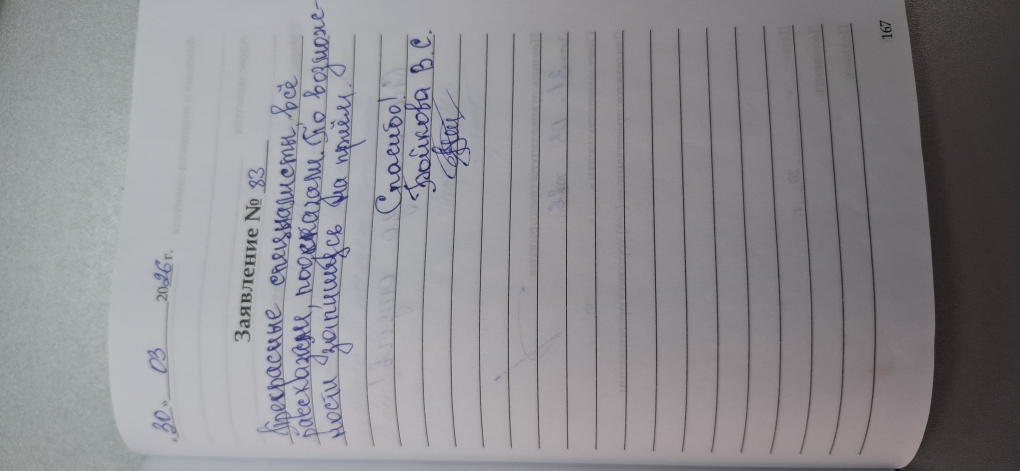 «30» 03 2026 г.
Заявление № 83
Прекрасные специалисты, всё
рассказали, подсказали. По возможно-
ности запишусь на приём.
Спасибо!
Бойкова В.С.
167